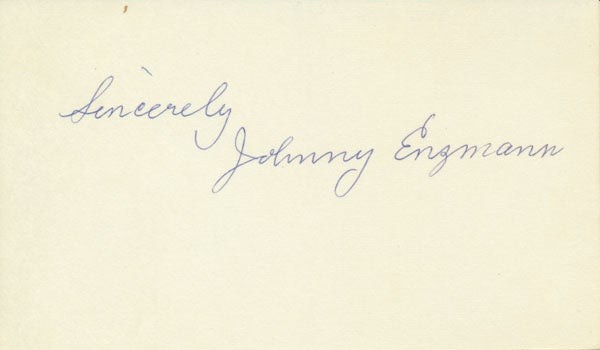 Sincerely
Johnny Enzmann